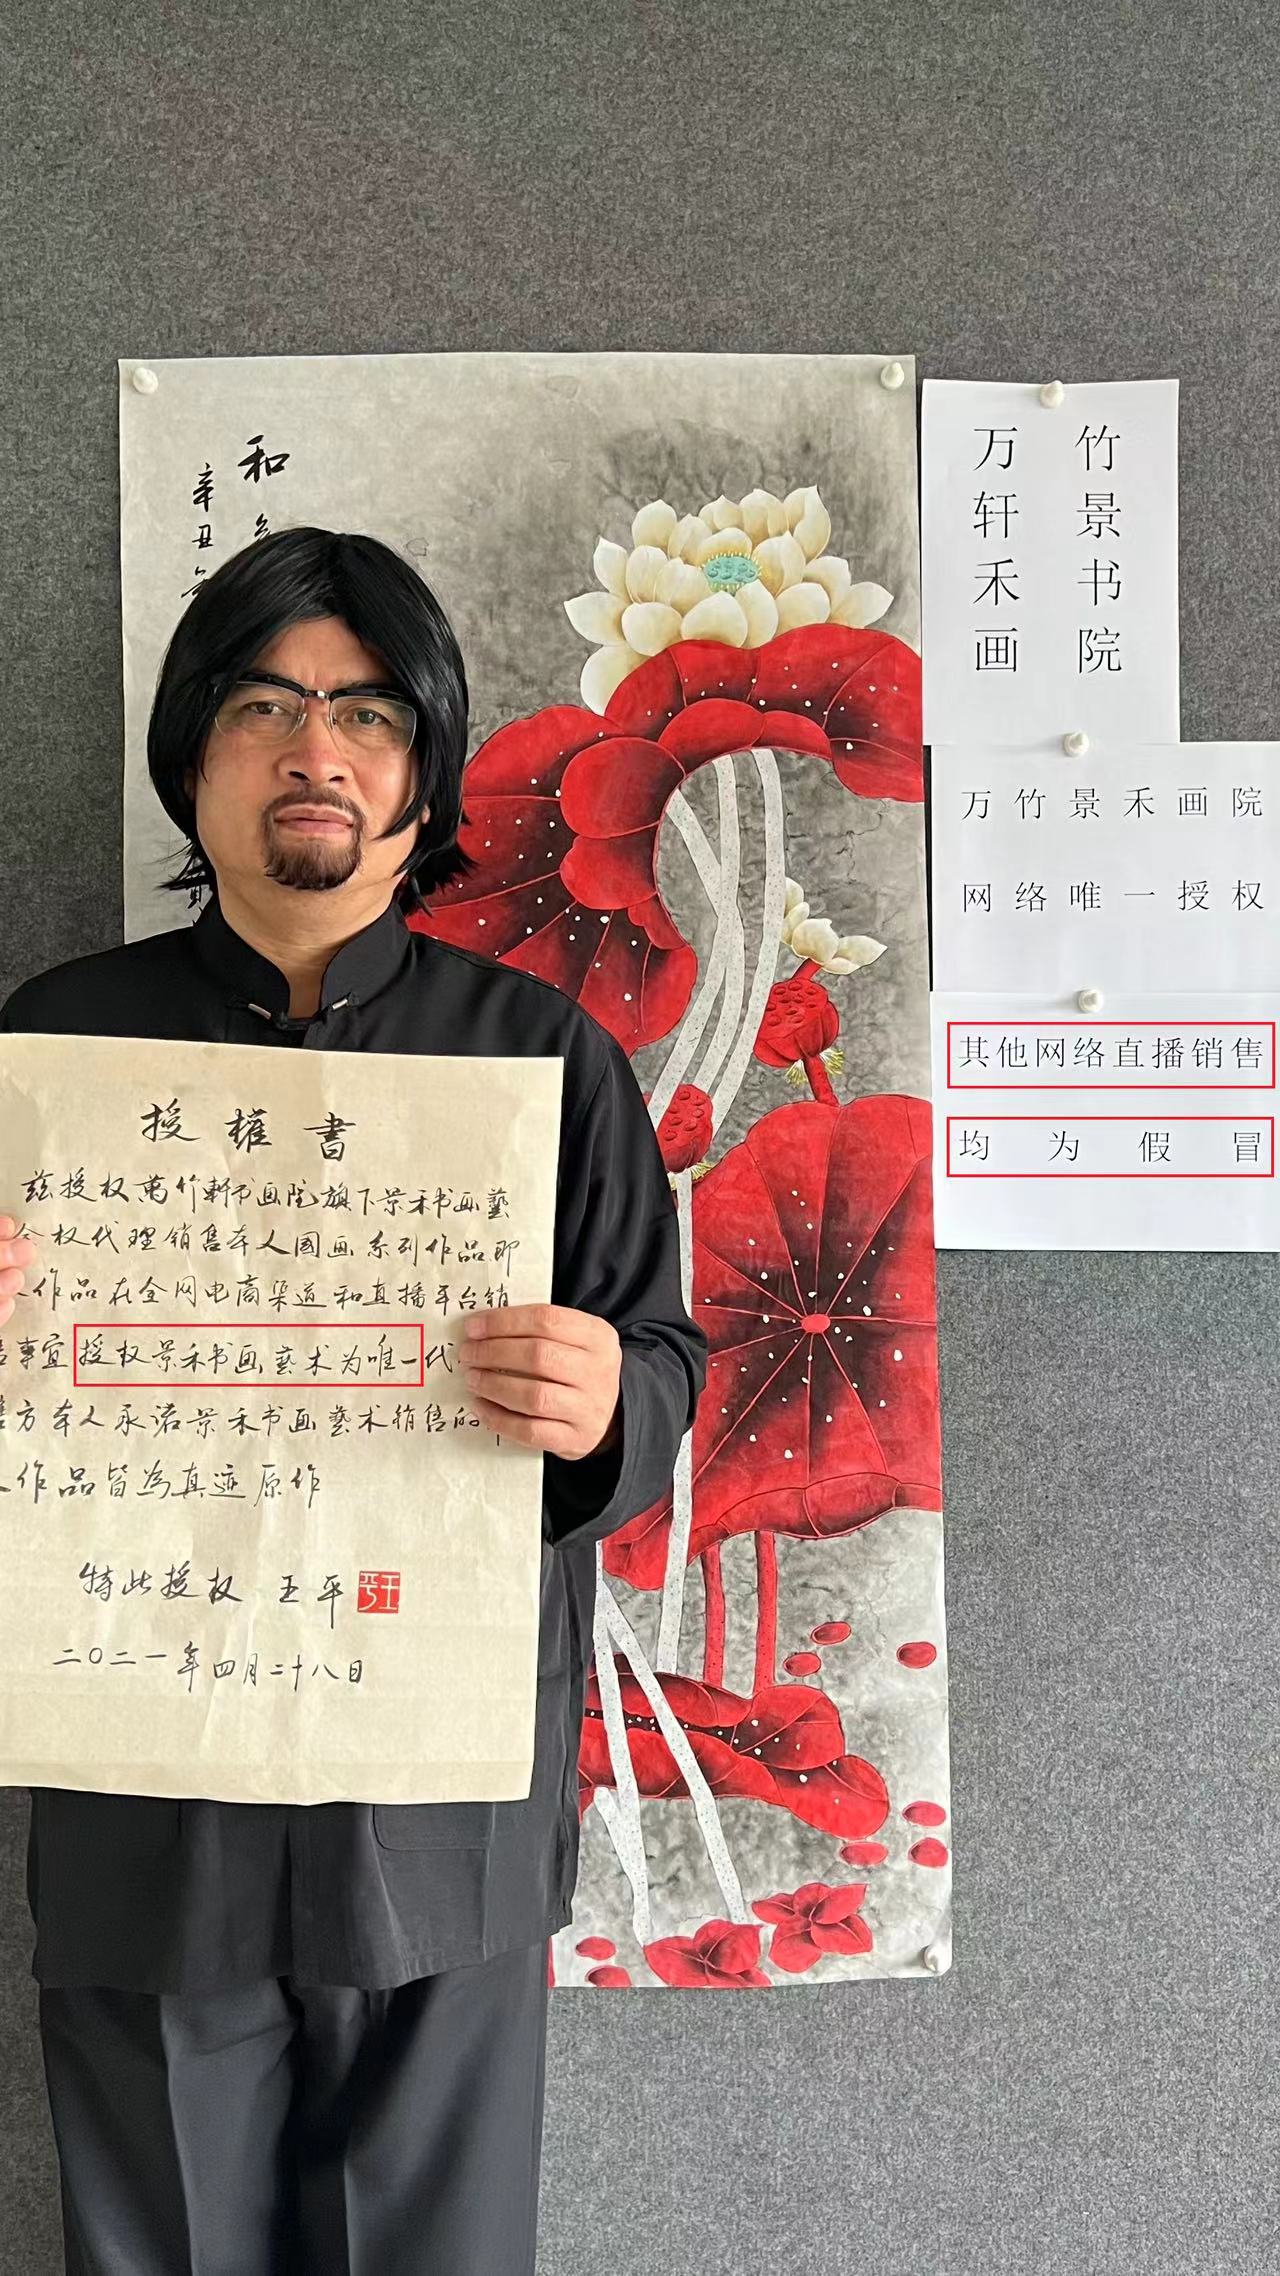 和
辛丑
万 竹
轩 景
禾 书
画 院
万竹景禾画院
网络唯一授权
其他网络直播销售
均为假冒
授權書
兹授权萬竹軒书画院旗下景禾书画藝
全权代理销售本人国画系列作品即
作品在全网电商渠道和直播平台销
售事宜授权景禾书画藝术为唯一代
售方本人承诺景禾书画藝术销售的
作品皆為真迹原作
特此授权 王平
王平
二〇二一年四月二十八日